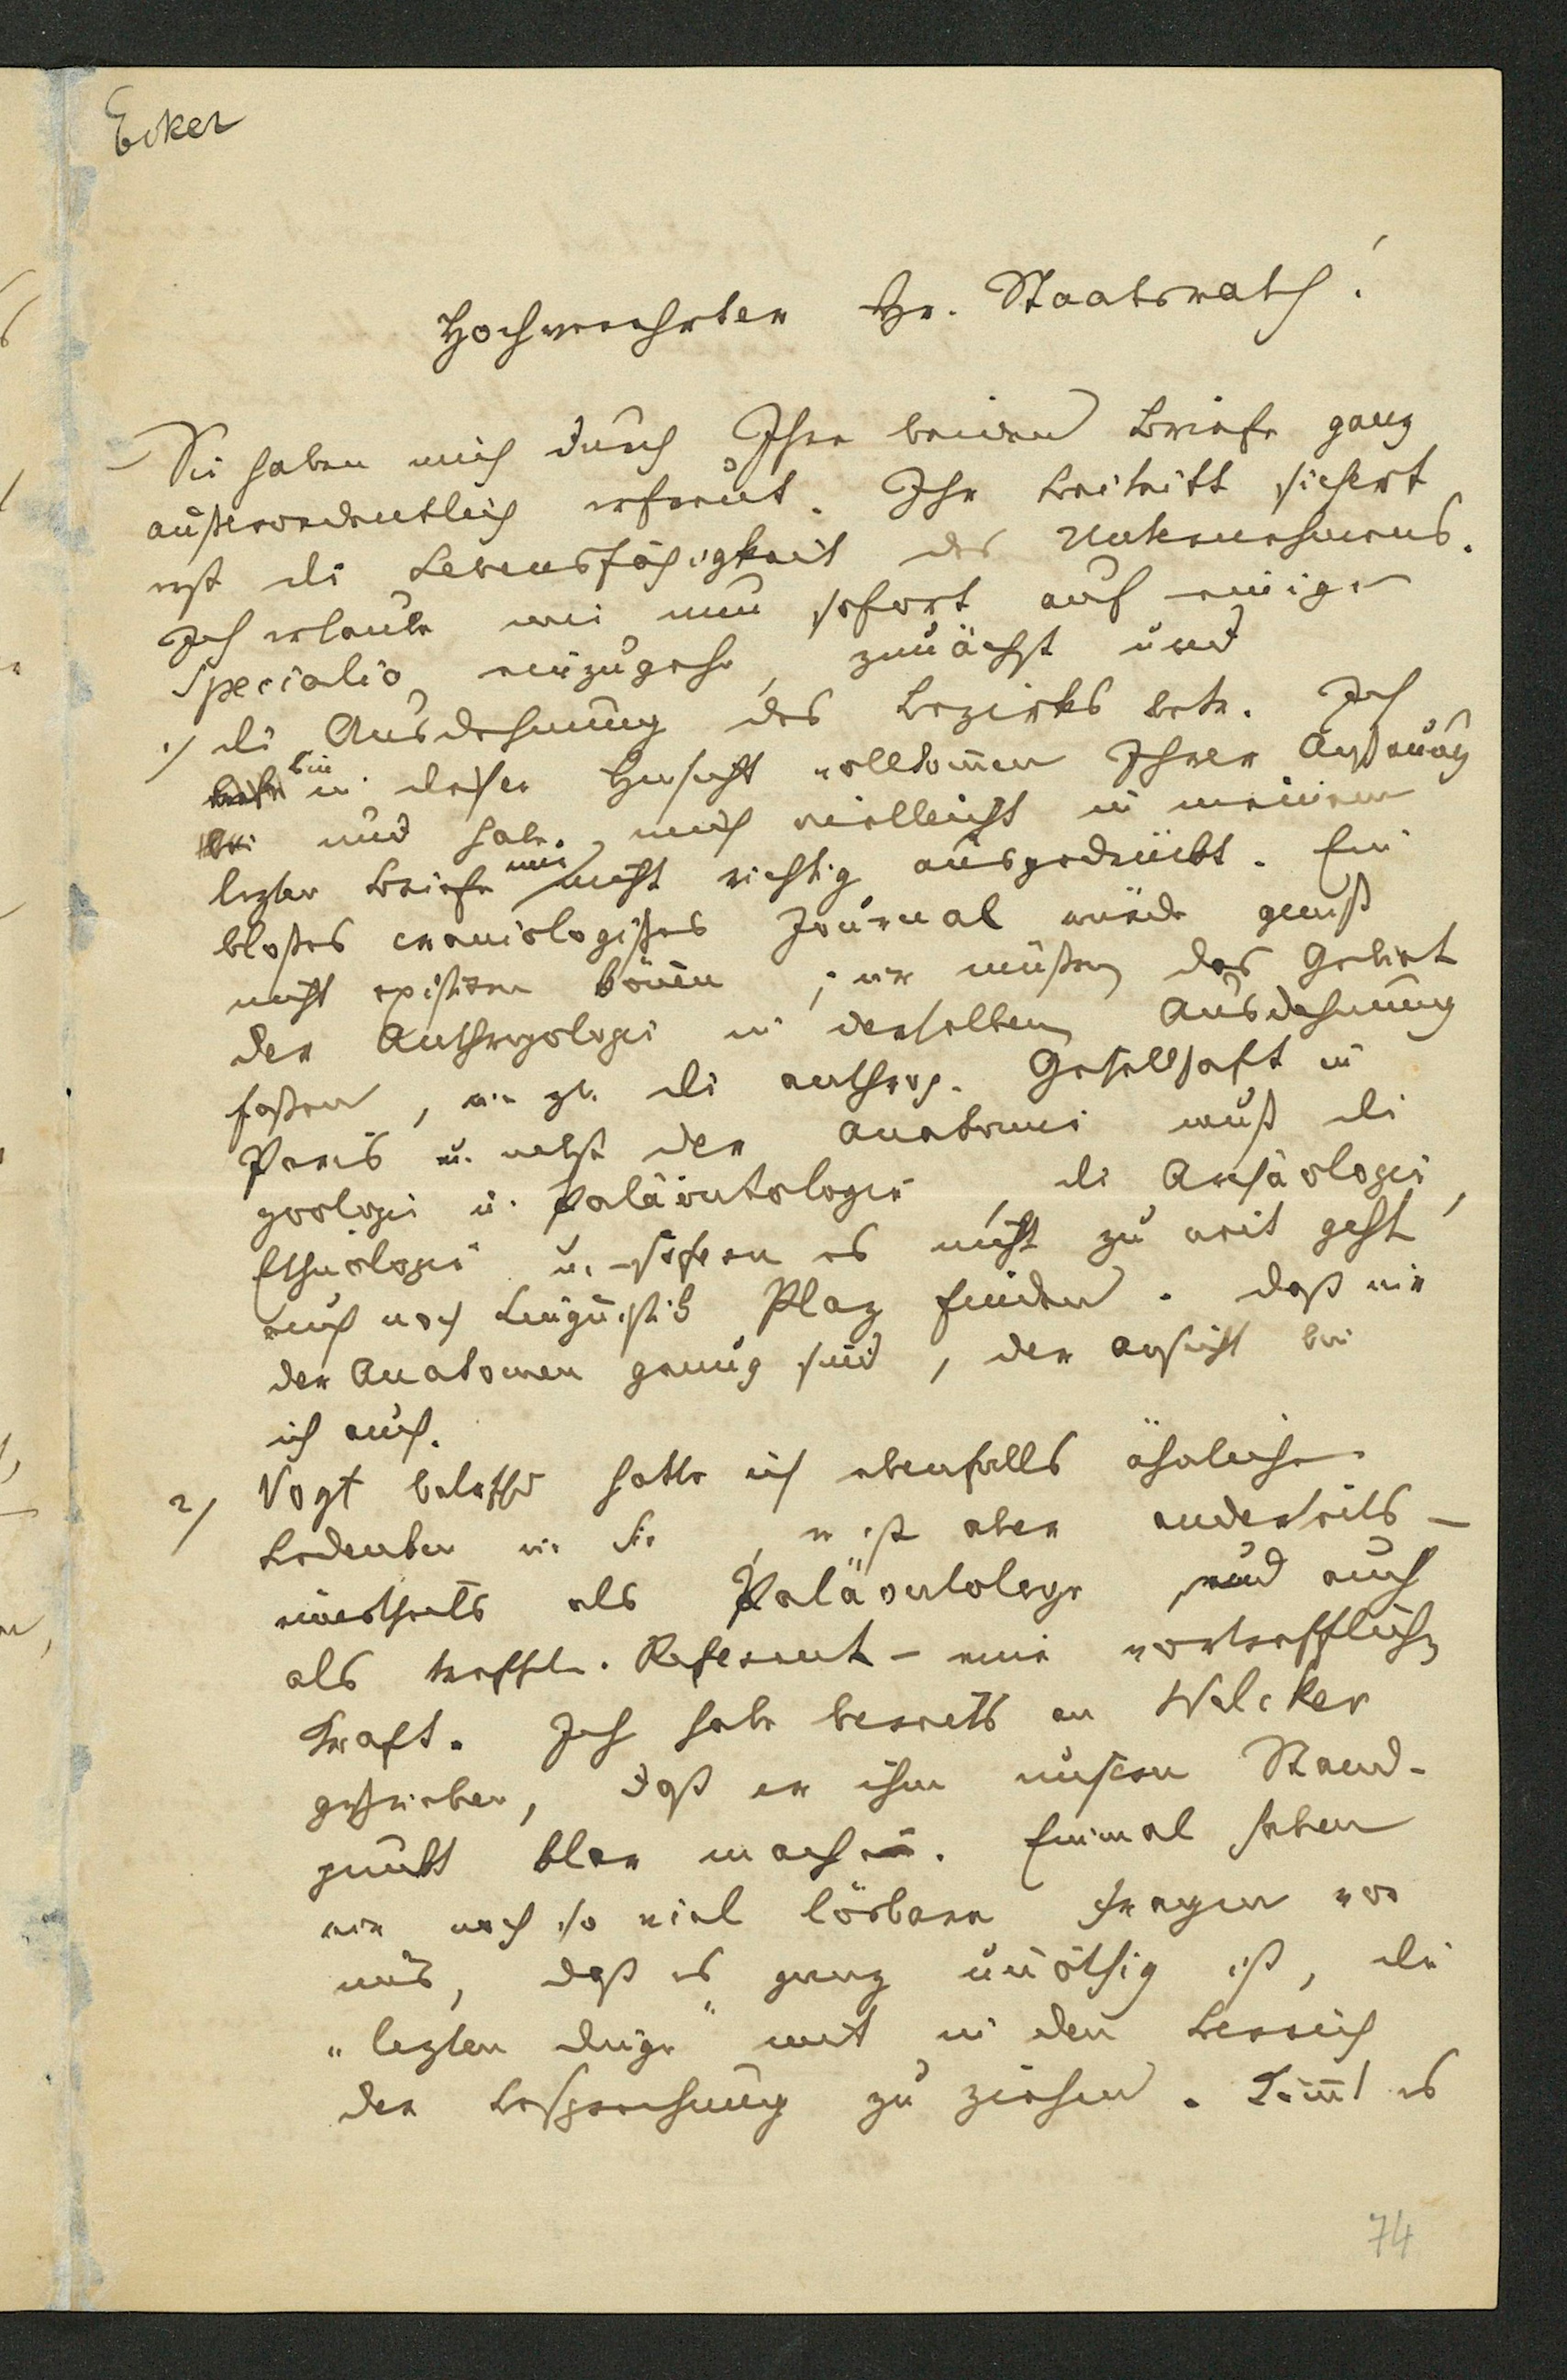 Ecker
Hochverehrter Hr. Staatsrath!
Sie haben mich durch Ihre beiden Briefe ganz
außerordentlich erfreut. Ihr Beitritt sichert
erst die Lebensfähigkeit des Unternehmens.
Ich erlaube mir nun sofort auf einige
Specialia einzugehn, zunächst und
1/ die Ausdehnung des Bezirks betr. Ich
bin in dieser Hinsicht vollkommen Ihrer Anschauung
und habe mich vielleicht in meinem
lezten Briefe nur nicht richtig ausgedrückt. Ein
bloßes craniologisches Journal würde gewiß
nicht existiren können; wir müßen das Gebiet
der Anthropologie in derselben Ausdehnung
faßen, wie zb. die anthrop. Gesellschaft in
Paris u. nebst der Anatomie muß die
Zoologie u. Paläontologie, die Archäologie,
Ethnologie u. sofern es nicht zu weit geht
auch noch Linguistik Plaz finden. Daß wir
der Anatomen genug sind, der Ansicht bin
ich auch.
2/ Vogt betreffend hatte ich ebenfalls ähnliche
Bedenken wie Sie, er ist aber anderseits -
einerseits als Paläontologe und auch
als treffl. Referent - eine vortreffliche
Kraft. Ich habe bereits an Welcker
geschrieben, daß er ihm unsern Stand-
punkt klar mache. Einmal haben
wir noch so viel lösbare Fragen vor
uns, daß es ganz unnöthig ist, die
"lezten Dinge" mit in den Bereich
der Besprechung zu ziehen. Kommt es
74